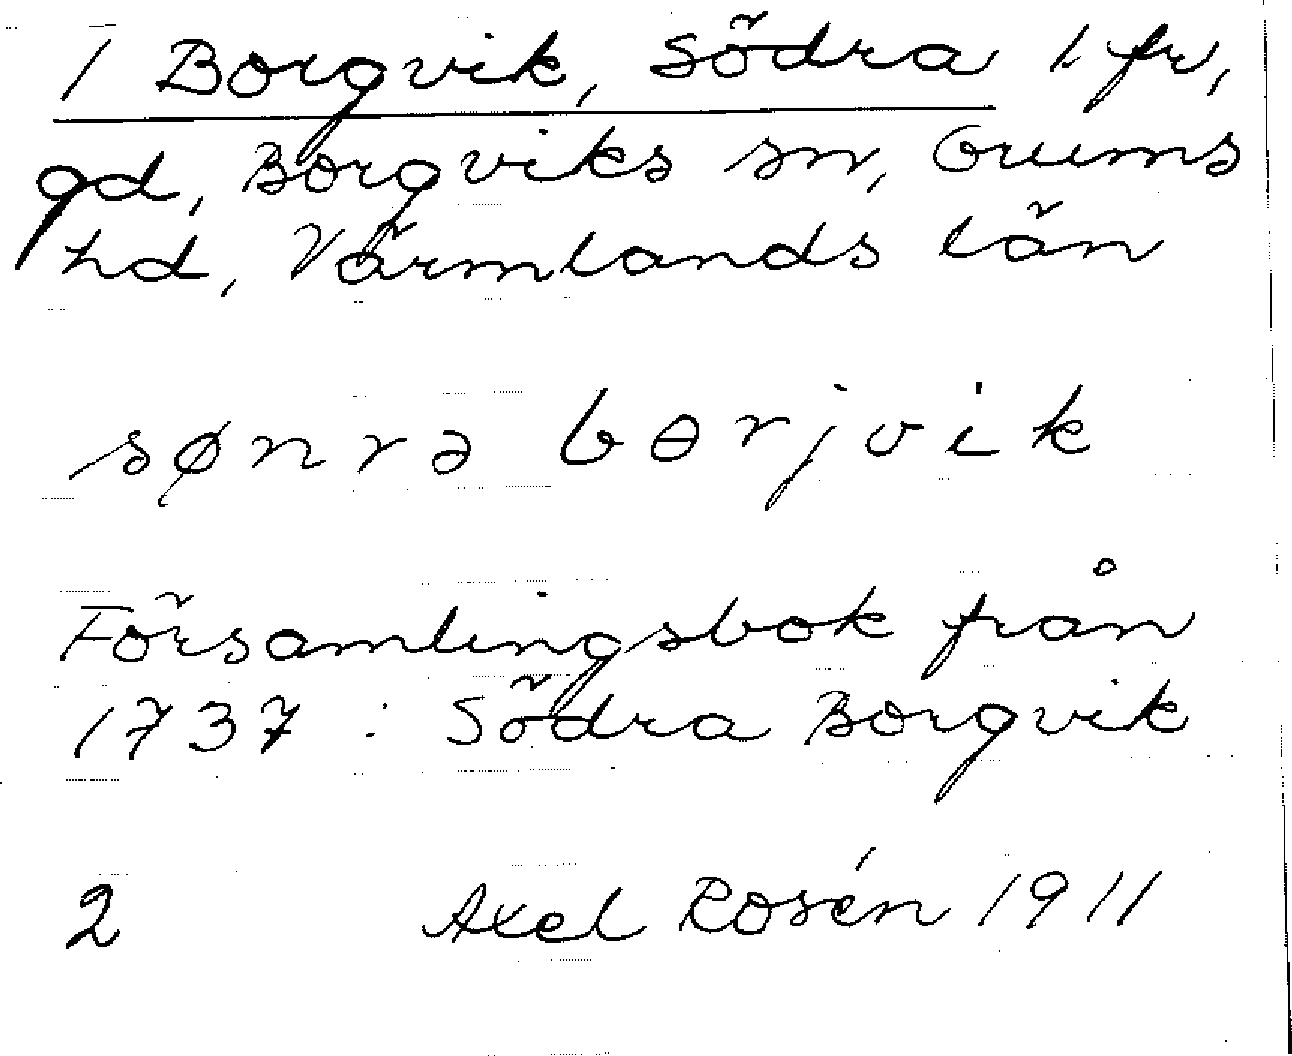 1 Borgvik, Södra 1 fr,
gd, Borgviks sn, Grums
hd, Värmlands län
sønrə bɵrjvik
Församlingsbok från
1737 : Södra Borgvik
2 Axel Rosén 1911